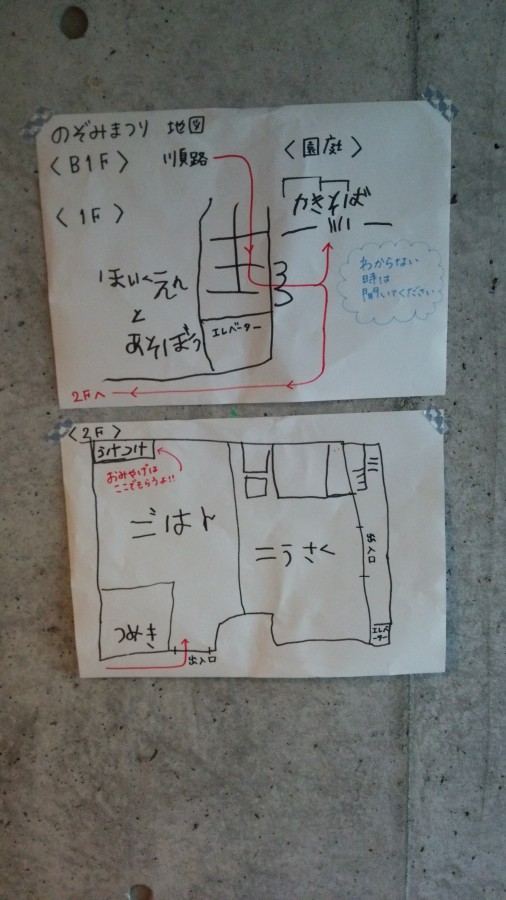 のぞみまつり 地図
〈B1F〉 順路 〈園庭〉
やきそば
〈1F〉
ほいくえん
と
あそぼう
エレベーター
わからない
時は
聞いてください
2Fへ
〈2F〉
うけつけ
おみやげは
ここでもらうよ!!
ごはん
こうさく
出入口
つみき
出入口
エレベーター